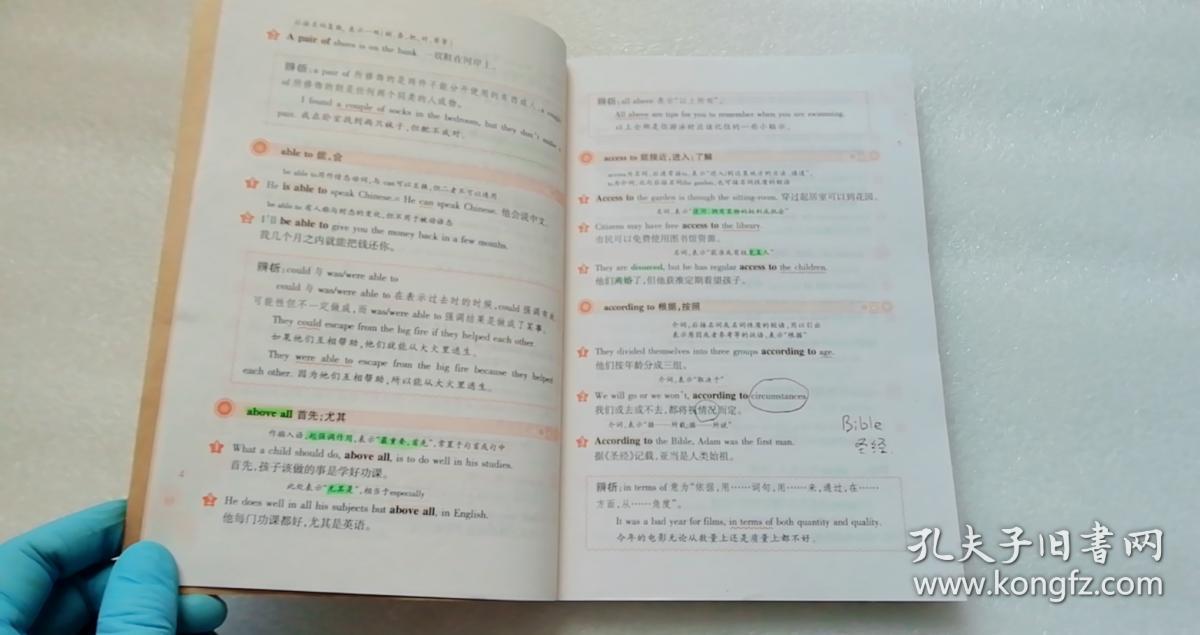 A pair of shoes is on the bank. 一双鞋在河岸上。
辨析:a pair of 所修饰的是两件不能分开使用的东西或人,a couple
of 所修饰的则是任何两个同类的人或物。
I found a couple of socks in the bedroom, but they don't make a
pair. 我在卧室找到两只袜子,但配不成对。
able to 能,会
be able to用作情态动词,与 can可以互换,但二者不可以连用
He is able to speak Chinese.= He can speak Chinese. 他会说中文。
be able to 有人称与时态的变化,但不用于被动语态
I'll be able to give you the money back in a few months.
我几个月之内就能把钱还你。
辨析:could 与 was/were able to
could 与 was/were able to 在表示过去时的时候,could 强调有此
可能性但不一定做成,而 was/were able to 强调结果是做成了某事。
They could escape from the big fire if they helped each other.
如果他们互相帮助,他们就能从大火里逃生。
They were able to escape from the big fire because they helped
each other. 因为他们互相帮助,所以能从大火里逃生。
above all 首先;尤其
作插入语,起强调作用,表示“最重要,首先”,常置于句首或句中
What a child should do, above all, is to do well in his studies.
首先,孩子该做的事是学好功课。
此处表示“尤其是”,相当于especially
He does well in all his subjects but above all, in English.
他每门功课都好,尤其是英语。
4
辨析:all above 表示“以上所有”。
All above are tips for you to remember when you are swimming.
以上全都是你游泳时应该记住的一些小提示。
access to 能接近,进入;了解
access为名词,后通常接to,表示“进入/到达某地方的方法、通道”,
to为介词,此句后接名词the garden,也可接名词性质的短语
Access to the garden is through the sitting-room. 穿过起居室可以到花园。
名词,表示“使用、拥有某物的权利或机会”
Citizens may have free access to the library.
市民可以免费使用图书馆资源。
名词,表示“能接近或看望某人”
They are divorced, but he has regular access to the children.
他们离婚了,但他获准定期看望孩子。
according to 根据,按照
介词,后接名词或名词性质的短语,用以引出
表示原因或者参考等的话语,表示“根据”
They divided themselves into three groups according to age.
他们按年龄分成三组。
介词,表示“取决于”
We will go or we won't, according to circumstances.
我们或去或不去,都将视情况而定。
介词,表示“据……所载,据……所说”
According to the Bible, Adam was the first man.
据《圣经》记载,亚当是人类始祖。
Bible
圣经
辨析:in terms of 意为“依据,用……词句,用……来,通过,在……
方面,从……角度”。
It was a bad year for films, in terms of both quantity and quality.
今年的电影无论从数量上还是质量上都不好。
孔夫子旧书网
www.kongfz.com